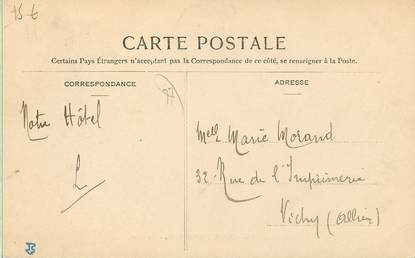 15 €
CARTE POSTALE
Certains Pays Étrangers n'acceptant pas la Correspondance de ce côté, se renseigner à la Poste.
CORRESPONDANCE
Notre Hôtel
L
ADRESSE
Melle Marie Morand
32 Rue de l'Imprimerie
Vichy (Allier)